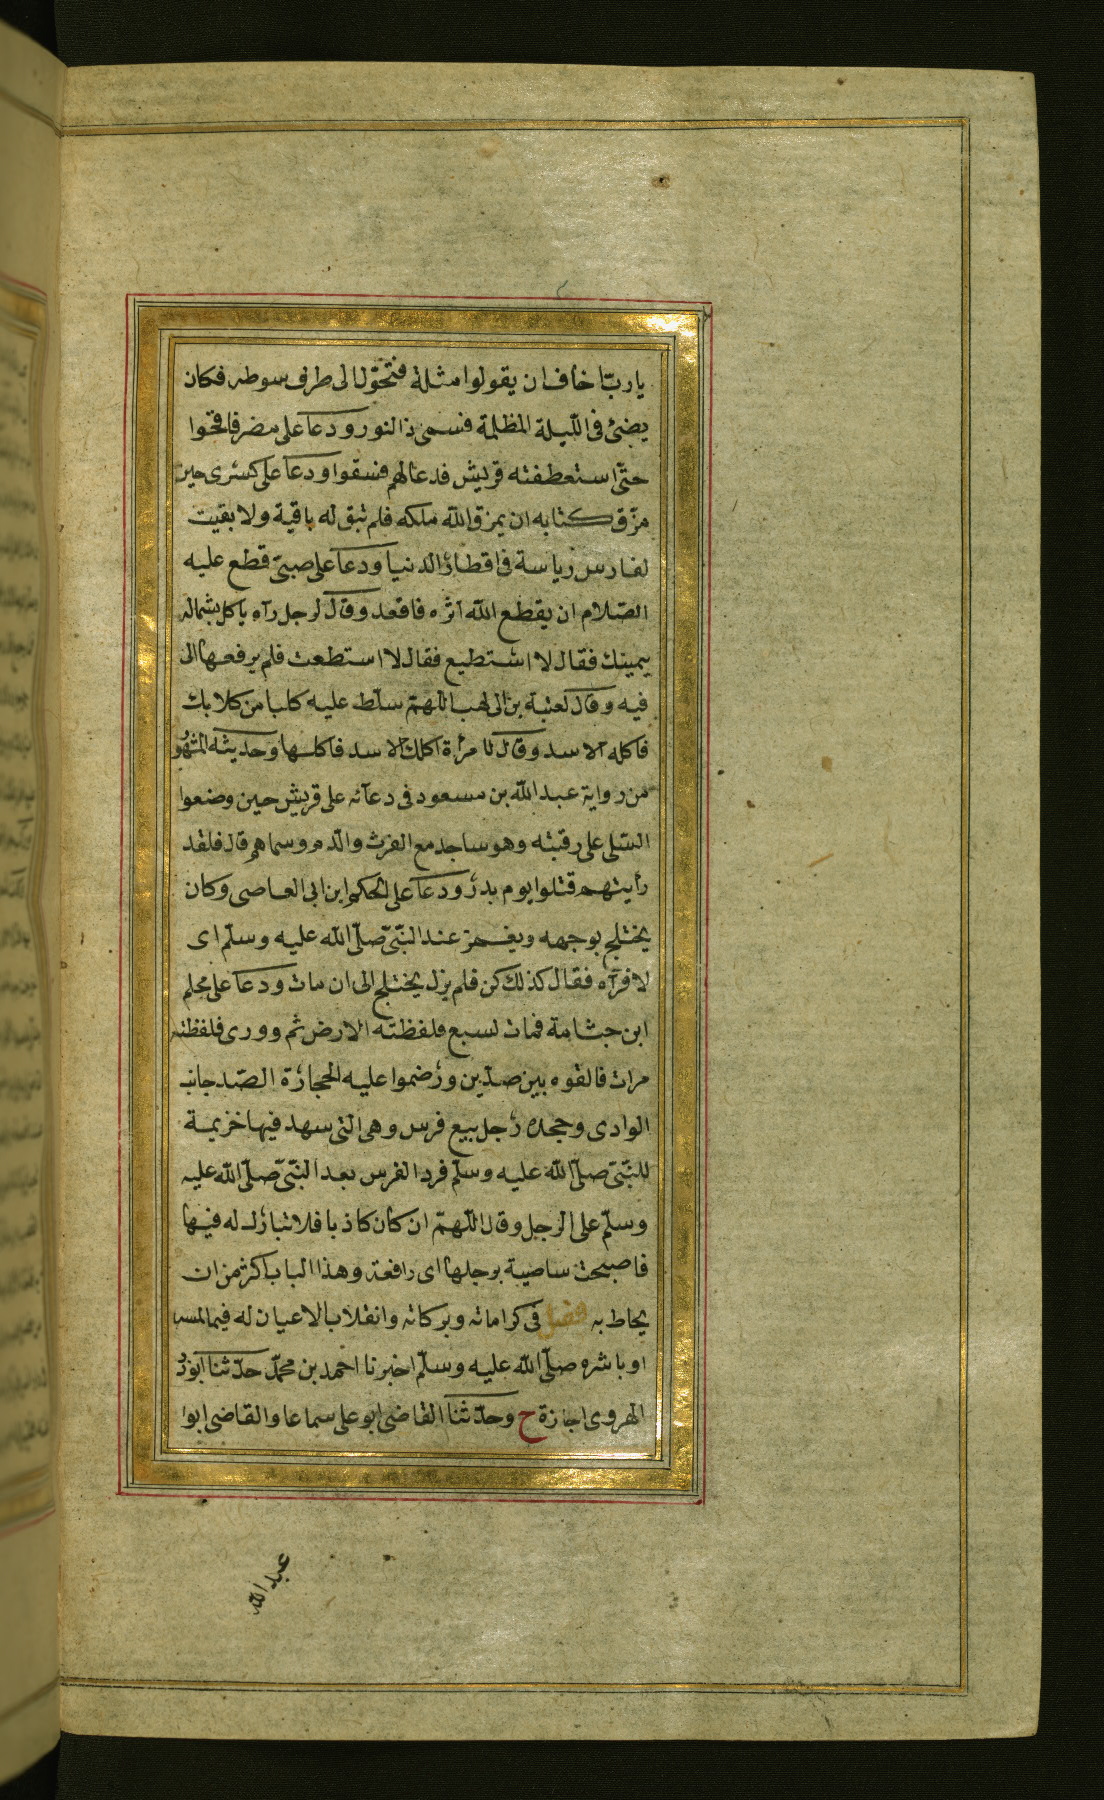 يا ربّ اخاف ان يقولوا مثلة فتحوّل الى طرف سوطه فكان
يضئ فى اللّيلة المظلمة فسمى ذا النور ودعا على مضر فاقحوا
حتّى استعطفته قريش فدعا لهم فسقوا ودعا على كسرى حين
مزّق كتابه ان يمزق اللّه ملكه فلم تبق له باقية ولا بقيت
لفارس رياسة فى اقطار الدنيا ودعا على صبىّ قطع عليه
الصّلام ان يقطع اللّه اثره فاقعد وقال لرجل رآه ياكل بشماله
بيمينك فقال لا استطيع فقال لا استطعت فلم يرفعها الى
فيه وقال لعتبة بن ابى لهب اللّهمّ سلّط عليه كلبا من كلابك
فاكله الاسد وقال لا مرأة اكلك الاسد فاكلها وحديثه المشهور
من رواية عبد اللّه بن مسعود فى دعآئه على قريش حين وضعوا
السّلى على رقبته وهو ساجد مع الفرث والدّم وسماهم قال فلقد
رأيتهم قتلوا يوم بدر ودعا على الحكم ابن ابى العاصى وكان
يختلج بوجهه ويغمز عند النّبىّ صلّى اللّه عليه وسلّم اى
لا فرآه فقال كذلك كن فلم يزل يختلج الى ان مات ودعا على محلم
ابن جثامة فمات لسبع فلفظته الارض ثم وورى فلفظته
مرات فالقوه بين صدّين ورضموا عليه الحجارة الصّد جانب
الوادى وجحده رجل بيع فرس وهى التى سهد فيها خزيمة
للنّبىّ صلّى اللّه عليه وسلّم فرد الفرس بعد النّبىّ صلّى اللّه عليه
وسلّم على الرجل وقال اللّهمّ ان كان كاذبا فلا تبارك له فيها
فاصبحت ساصية برجلها اى رافعة وهذا الباب اكثر من ان
يحاط به فصل فى كراماته وبركاته وانقلاب الاعيان له فيما لمسه
او باشره صلّى اللّه عليه وسلّم اخبرنا احمد بن محمّد حدّثنا ابو ذر
الهروى اجازة ح وحدّثنا القاضى ابو على سماعا والقاضى ابوا
عبد اللّه